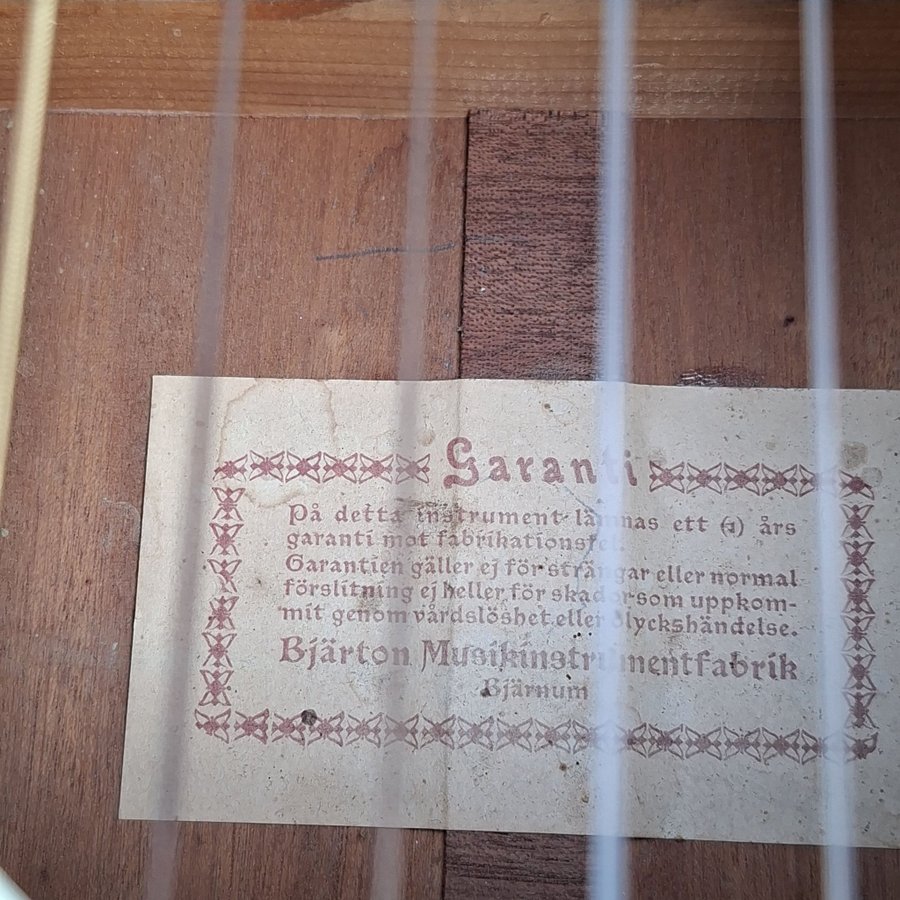 Garanti
På detta instrument lämnas ett (1) års
garanti mot fabrikationsfel.
Garantien gäller ej för strängar eller normal
förslitning ej heller för skador som uppkom-
mit genom vårdslöshet eller olyckshändelse.
Bjärton Musikinstrumentfabrik
Bjärnum